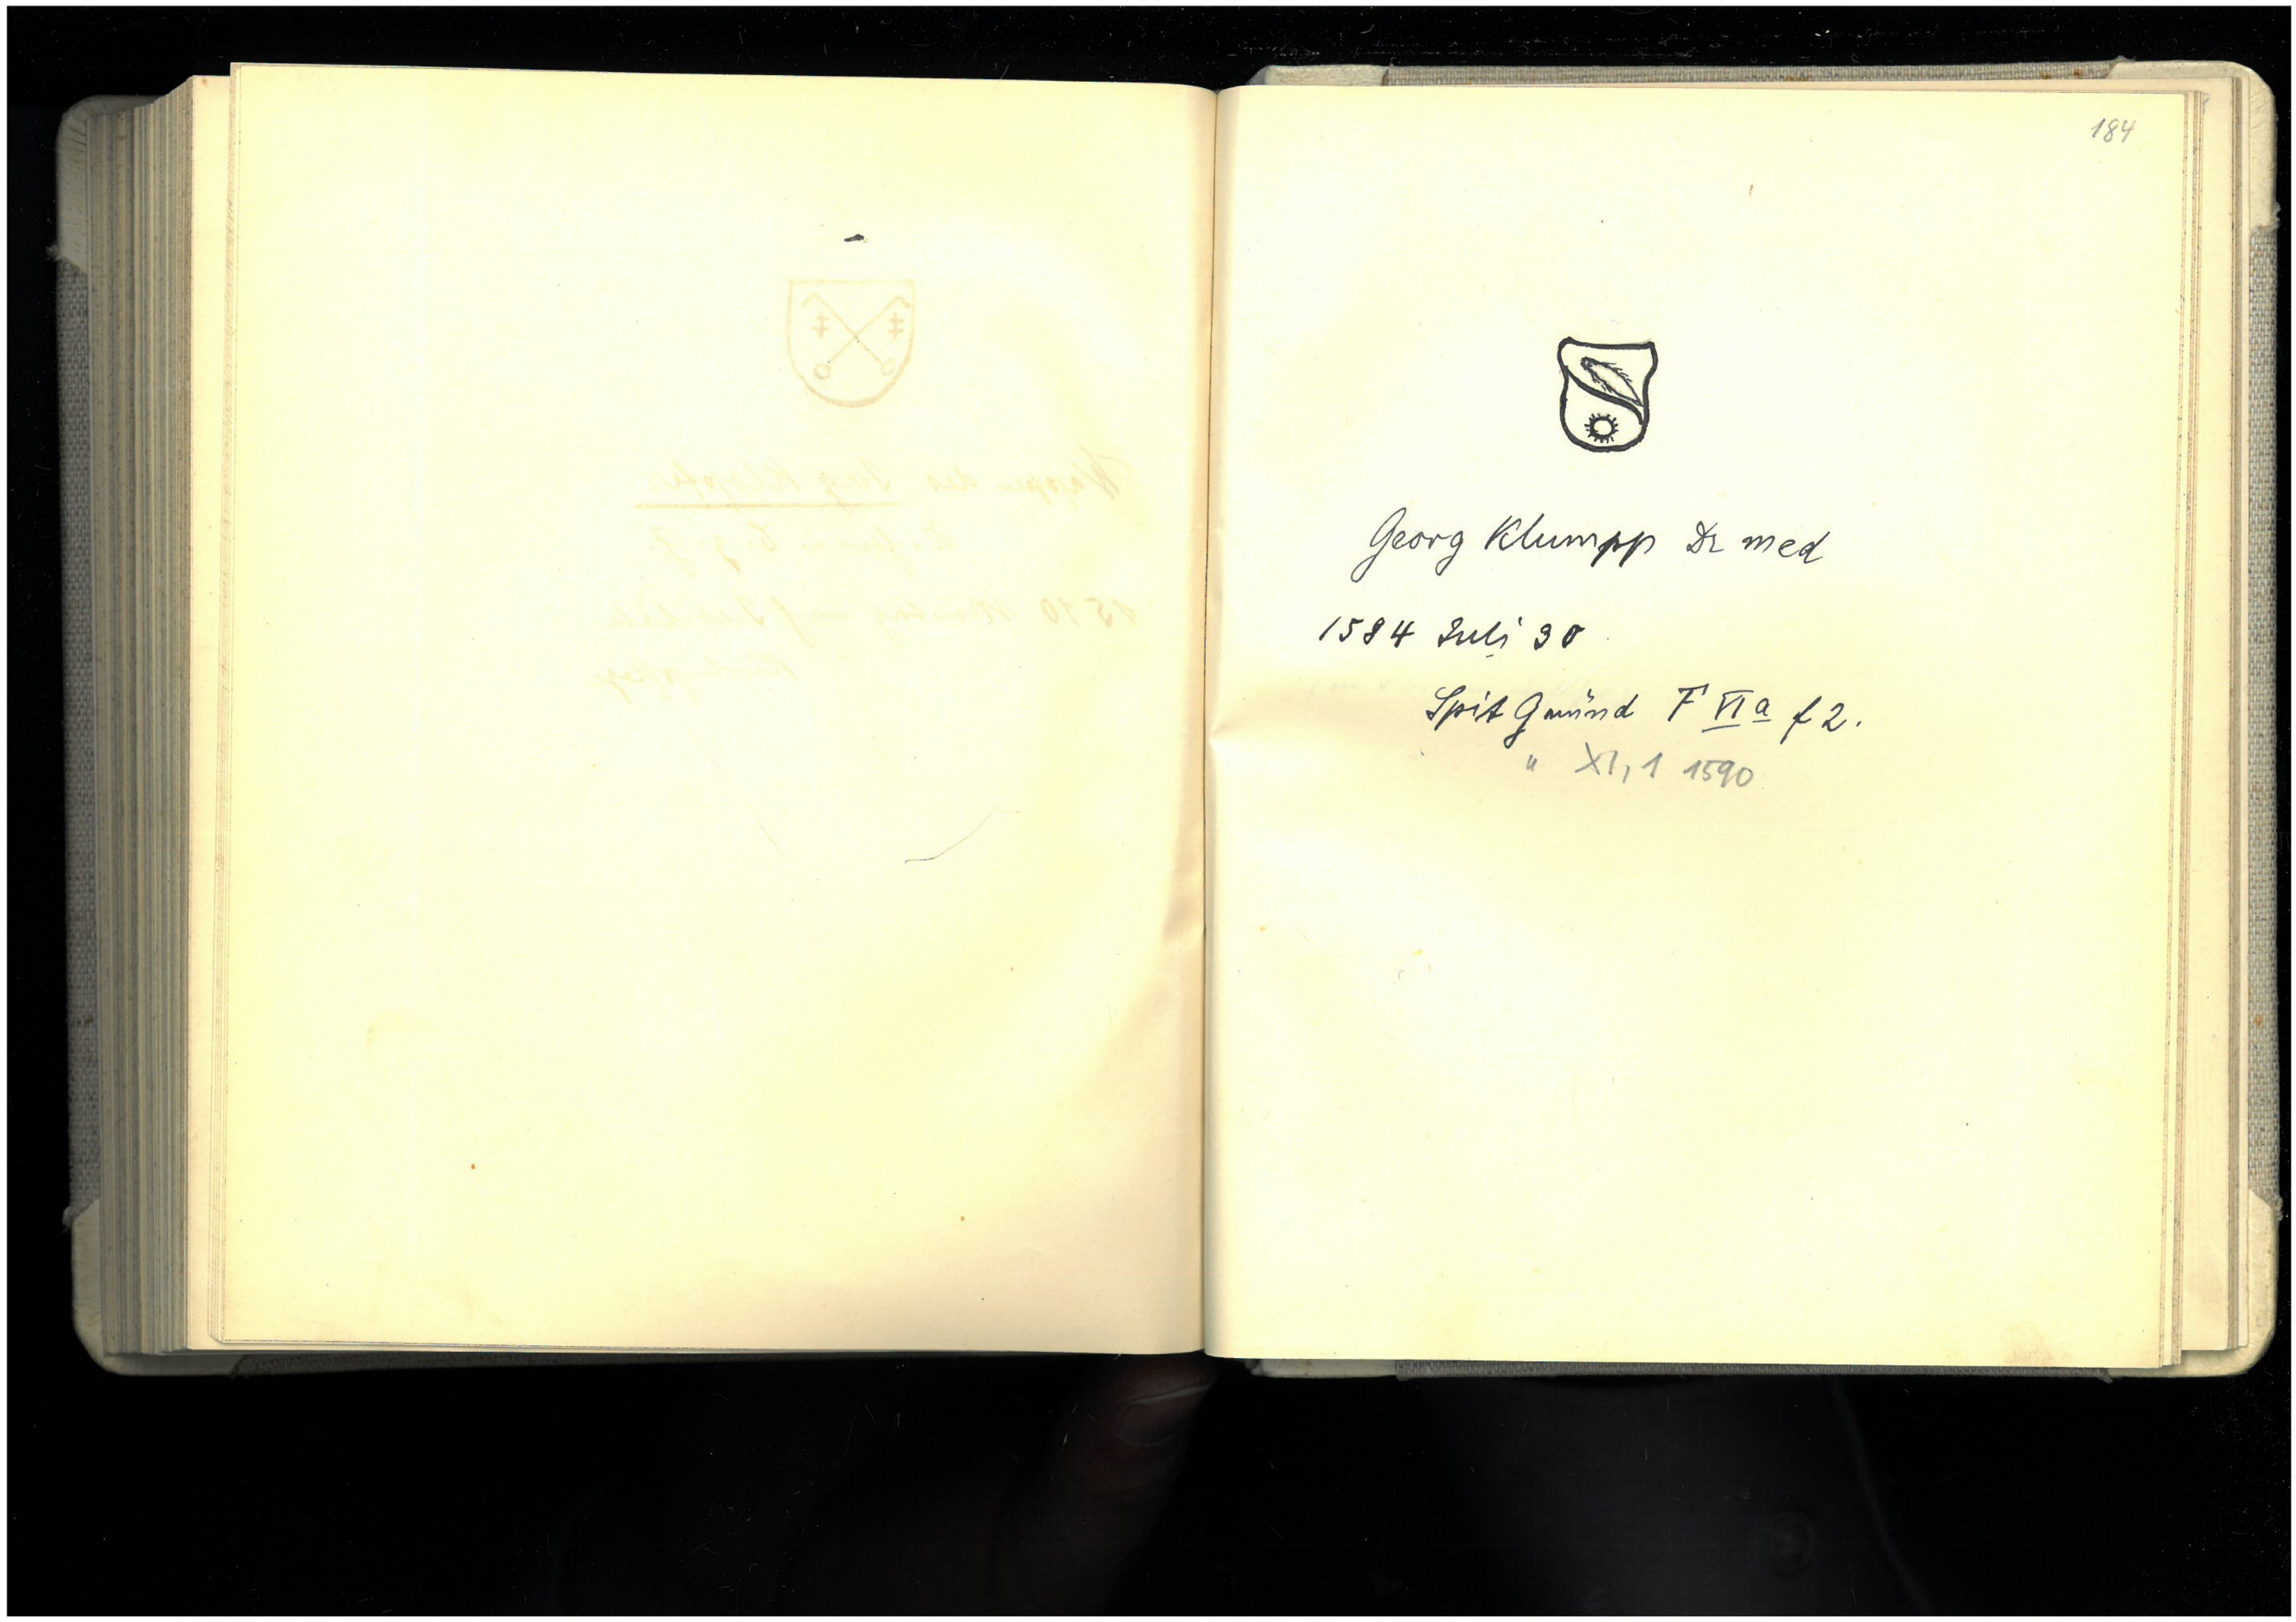 184
Georg Klumpp Dr med
1584 Juli 30
Spit Gmünd F VI a f 2.
" XI, 1 1590